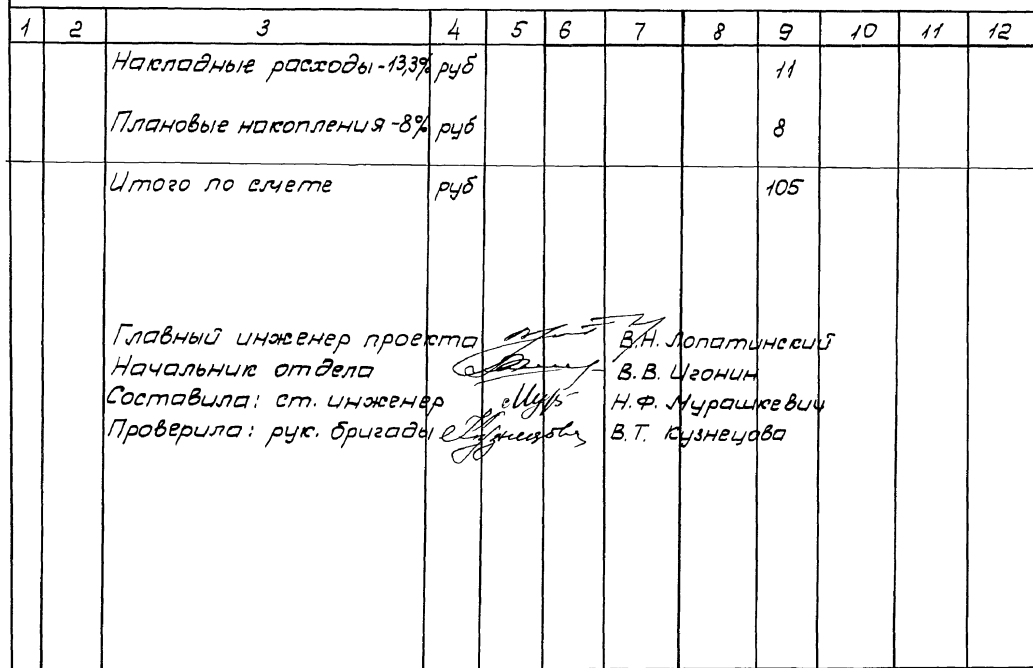 1 2 3 4 5 6 7 8 9 10 11 12
Накладные расходы -13,3% руб 11
Плановые накопления -8% руб 8
Итого по смете руб 105
Главный инженер проекта В.Н. Лопатинский
Начальник отдела В.В. Игонин
Составила: ст. инженер Мур Н.Ф. Мурашкевич
Проверила: рук. бригады Кузнецова В.Т. Кузнецова